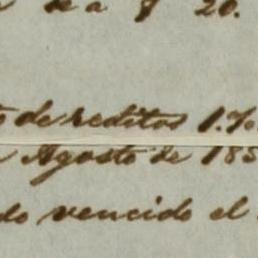 de a $ 20.
de reditos 1.%
Agosto de 185
do vencido el